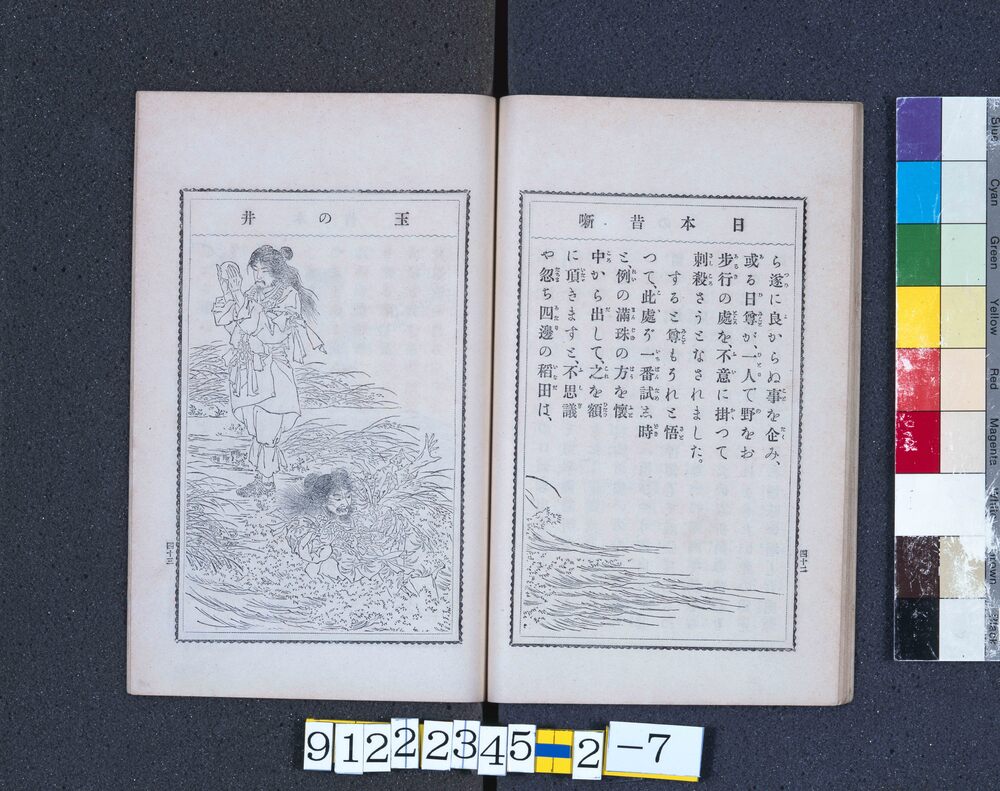 日本昔噺
ら遂に良からぬ事を企み、
或る日尊が、一人で野をお
歩行の處を、不意に掛つて
刺殺さうとなされました。
すると尊もうれと悟
つて、此處ぞ一番試み時
と、例の滿珠の方を懷
中から出して、之を額
に頂きますと、不思議
や忽ち四邊の稻田は、
四十二
玉の井
四十三
9122345=2-7
Blue
Cyan
Green
Yellow
Red
Magenta
White
Brown
Black